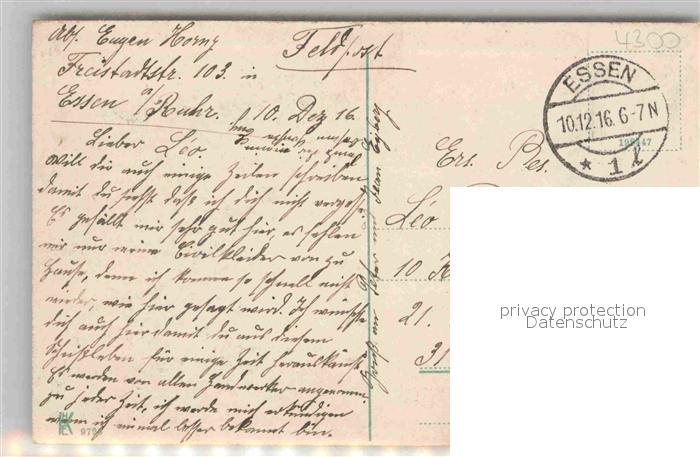 Abs. Eugen Horny
Freistadtstr. 103. in
Essen a/Ruhr. 10. Dez 16.
Feldpost
4300
ESSEN
10.12.16. 6-7 N
* 1 l
Lieber Leo
Will dir auch einige Zeilen schreiben
damit du siehst daß ich dich nicht vergesse
Es gefällt mir sehr gut hier, es fehlen
mir nur meine Civilkleider von zu
Hause, denn ich komme so schnell nicht
wieder, wie hier gesagt wird. Ich wünsche
dich auch hier damit du aus diesem
für einige Zeit herauskämst
Es werden von allen Handwerker angenommen
zu jeder Zeit, ich werde mich erkundigen
wenn ich einmal besser bekannt bin.
Ers. Res.
Leo
10
21.
31
privacy protection
Datenschutz